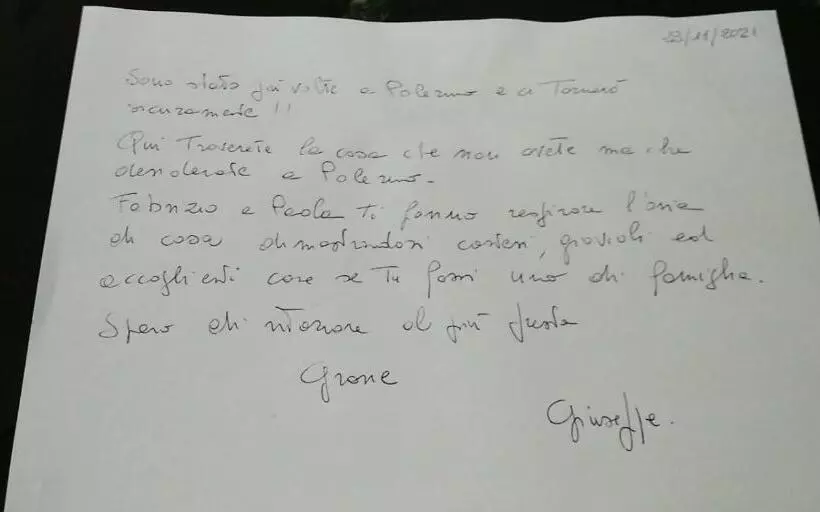 23/11/2021
Sono stato più volte a Palermo e ci Tornerò
sicuramente !!
Qui Troverete la casa che non avete ma che
desiderate a Palermo.
Fabrizio e Paola Ti fanno respirare l'aria
di casa dimostrandosi cortesi, gioviali ed
accoglienti come se Tu fossi uno di famiglia.
Spero di ritornare al più presto
Grazie
Giuseppe.